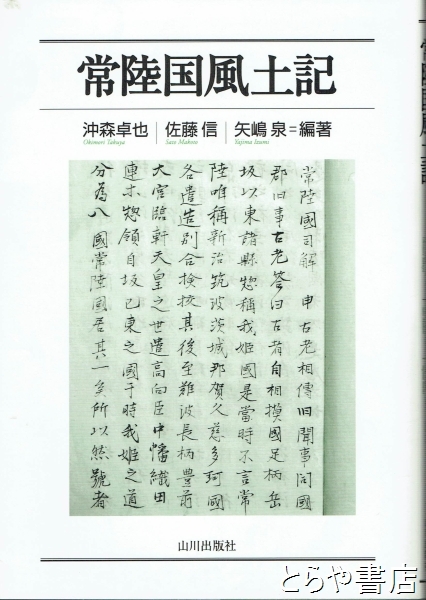 常陸国風土記
沖森卓也
Okimori Takuya
佐藤 信
Sato Makoto
矢嶋 泉=編著
Yajima Izumi
常陸國司解 申古老相傳旧聞事問國
郡旧事古老答曰古者自相摸國足柄岳
坂以東諸縣惣稱我姫國是當時不言常
陸唯稱新治筑波茨城那賀久慈多珂國
各遣造別令検挍其後至難波長柄豊前
大宮臨軒天皇之世遣高向臣中幡織田
連木惣領自坂已東之國于時我姫之道
分為八國常陸國居其一矣所以然號者
山川出版社
常陸国風土記
とらや書店